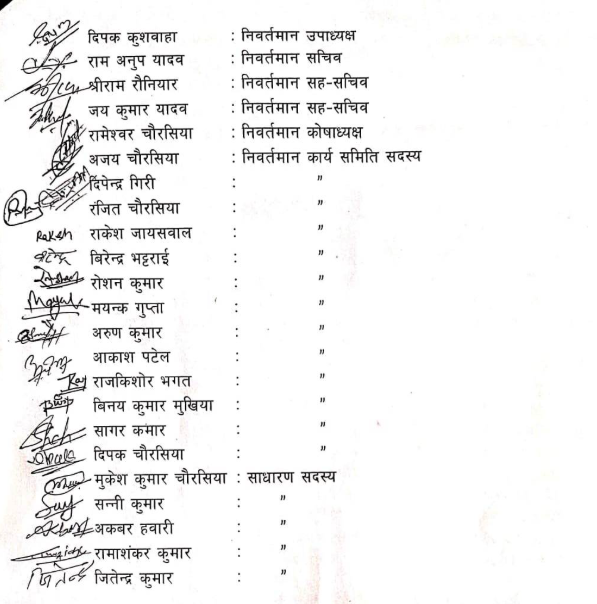 दिपक कुशवाहा : निवर्तमान उपाध्यक्ष
राम अनुप यादव : निवर्तमान सचिव
श्रीराम रौनियार : निवर्तमान सह-सचिव
जय कुमार यादव : निवर्तमान सह-सचिव
रामेश्वर चौरसिया : निवर्तमान कोषाध्यक्ष
अजय चौरसिया : निवर्तमान कार्य समिति सदस्य
दिपेन्द्र गिरी : "
रंजित चौरसिया : "
Rakesh राकेश जायसवाल : "
बिरेन्द्र भट्टराई : "
रोशन कुमार : "
मयन्क गुप्ता : "
अरुण कुमार : "
आकाश पटेल : "
Raj राजकिशोर भगत : "
बिनय कुमार मुखिया : "
सागर कमार : "
दिपक चौरसिया : "
मुकेश कुमार चौरसिया : साधारण सदस्य
सन्नी कुमार : "
अकबर हवारी : "
रामाशंकर कुमार : "
जितेन्द्र कुमार : "